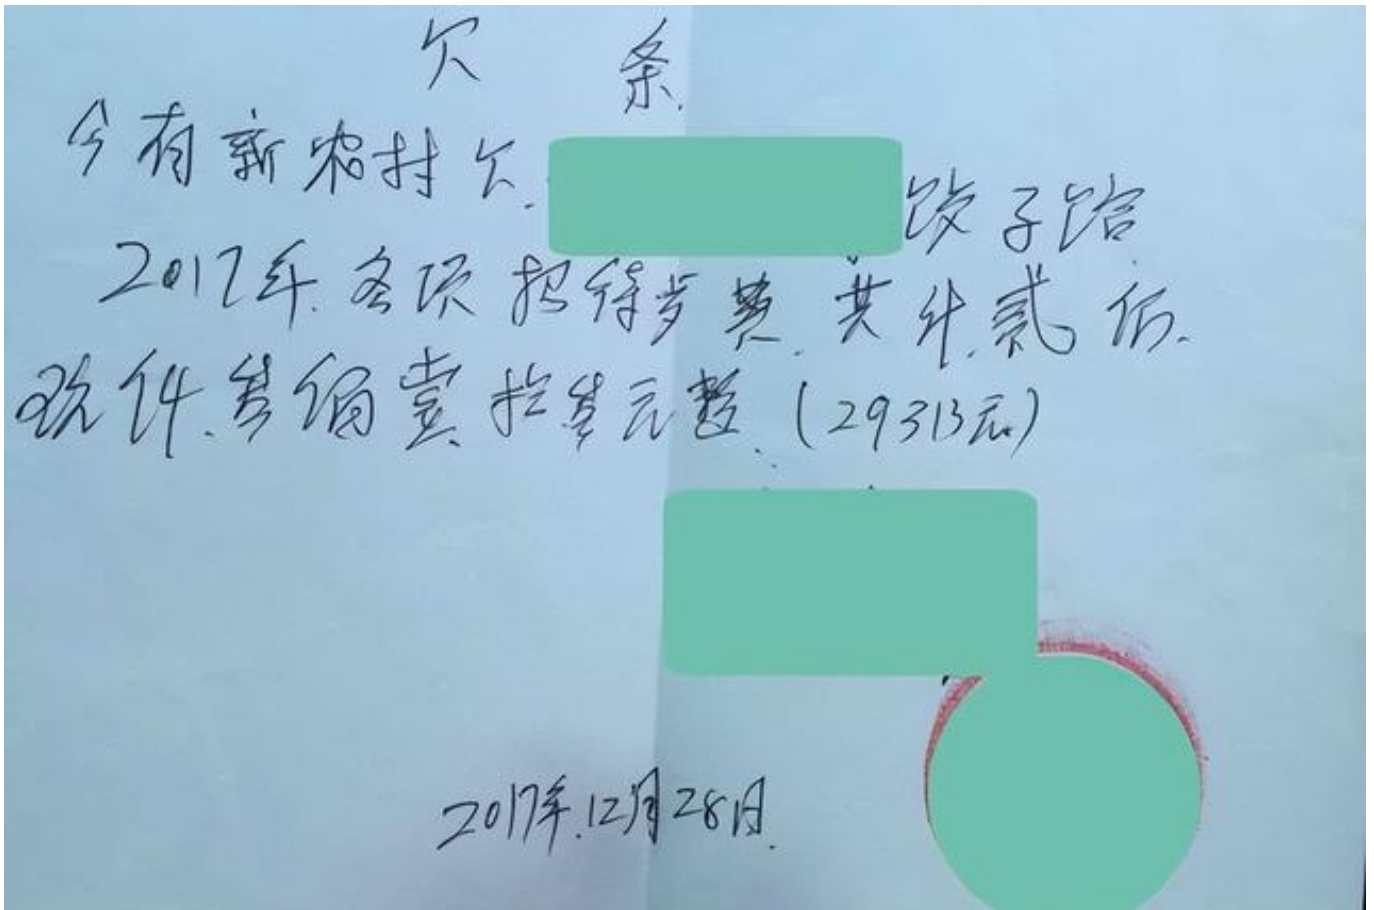 欠 条.
今有新农村欠. 饺子馆
2017年.各项招待费.共计.贰万.
玖仟.叁佰壹拾叁元整.(29313元)
2017年.12月28日.